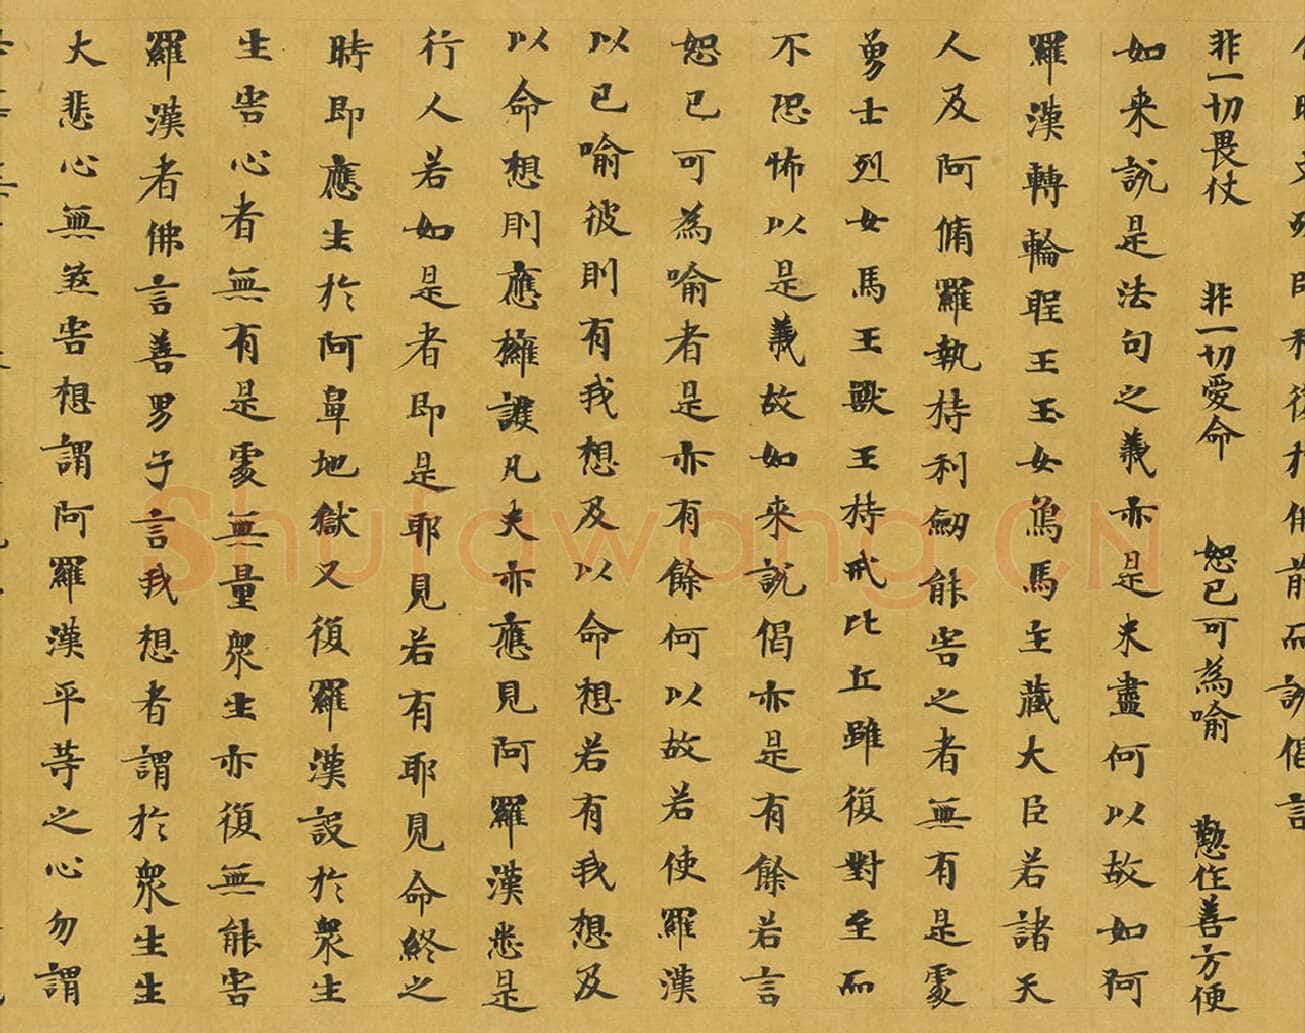 非一切畏仗　非一切愛命　恕己可為喻　懃作善方便
如来說是法句之義亦是未盡何以故如阿
羅漢轉輪聖王玉女為馬主藏大臣若諸天
人及阿脩羅執持利劒能害之者無有是處
勇士烈女馬王獸王持戒比丘雖復對至而
不恐怖以是義故如来說偈亦是有餘若言
恕己可為喻者是亦有餘何以故若使羅漢
以己喻彼則有我想及以命想若有我想及
以命想則應擁護凡夫亦應見阿羅漢悉是
行人若如是者即是耶見若有耶見命終之
時即應生於阿鼻地獄又復羅漢設於衆生
生害心者無有是處無量衆生亦復無能害
羅漢者佛言善男子言我想者謂於衆生生
大悲心無煞害想謂阿羅漢平等之心勿謂
Shufawang.CN